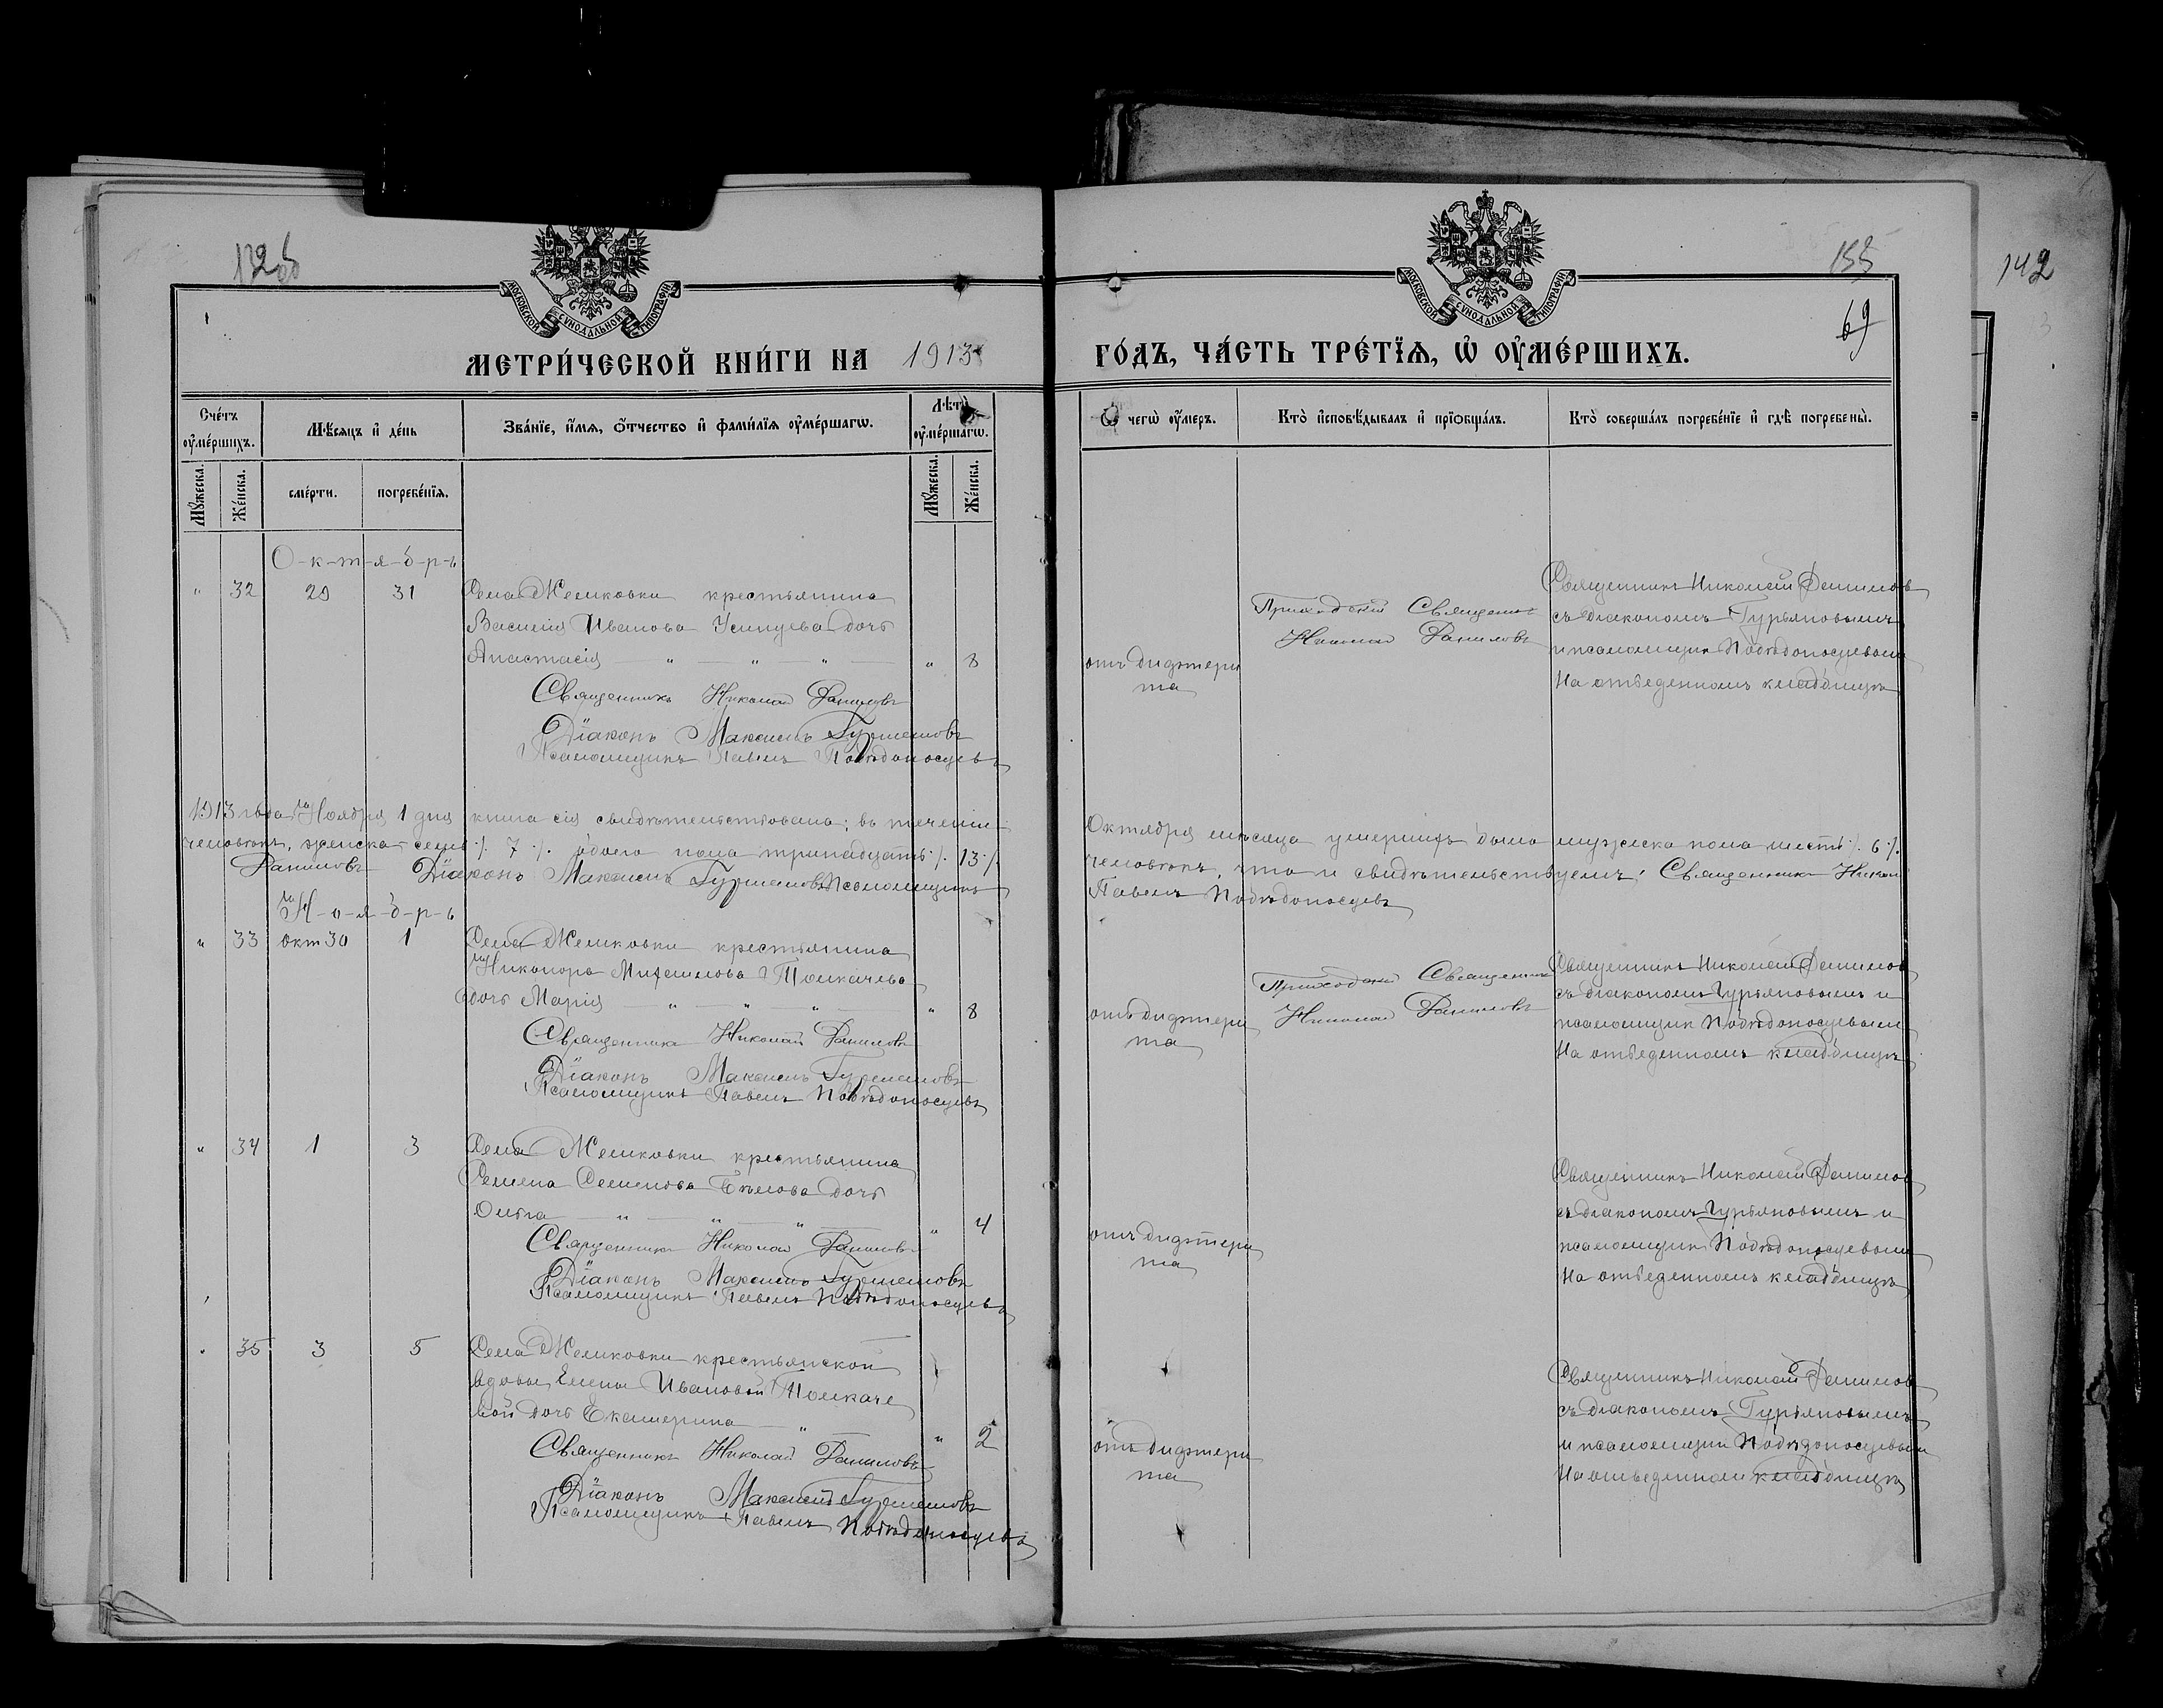 132об
155
142
69
МОСКОВСКОЙ СѴНОДАЛЬНОЙ ТИПОГРАФІИ
МОСКОВСКОЙ СѴНОДАЛЬНОЙ ТИПОГРАФІИ
МЕТРИ́ЧЕСКОЙ КНИ́ГИ НА 1913 ГО́ДЪ, ЧА́СТЬ ТРЕ́ТЇѦ, Ѡ҆ ОУ҆МЕ́РШИХЪ.
Сче́тъ оу҆ме́ршихъ.
Мѣ́сѧцъ и҆ де́нь
Зва́нїе, и҆́мѧ, ѻ҆́тчество и҆ фами́лїѧ оу҆ме́ршагѡ.
Лѣ́та оу҆ме́ршагѡ.
Ѿ чегѡ̀ оу҆́меръ.
Кто̀ и҆сповѣ́дывалъ и҆ прїѻбща́лъ.
Кто̀ соверша́лъ погребе́нїе и҆ гдѣ̀ погребены̀.
Мꙋ́жеска.
Же́нска.
сме́рти.
погребе́нїѧ.
Мꙋ́жеска.
Же́нска.
О-к-т-я-б-р-ь
" 32 29 31 Села Желковки крестьянина
Василія Иванова дочь
Анастасія " " " " 8
Священникъ Николай Даниловъ
Діаконъ Максимъ Гурьяновъ
Псаломщикъ Павелъ Побѣдоносцевъ
отъ дифтери
та
Приходскій Священникъ
Николай Даниловъ
Священникъ Николай Данилов
съ діакономъ Гурьяновымъ
и псаломщик Побѣдоносцевым
На отведенномъ кладбищѣ
1913 года Ноября 1 дня книга сія свидѣтельствована; въ теченіи Октября мѣсяца умершихъ было мужеска пола шесть ·/. 6 ·/.
человѣкъ, женска – семь ·/. 7 ·/. обоего пола тринадцать ·/. 13 ·/. человѣкъ, что и свидѣтельствуемъ: Священникъ Николай
Даниловъ Діаконъ Максимъ Гурьяновъ Псаломщикъ Павелъ Побѣдоносцевъ
Н-о-я-б-р-ь
" 33 окт 30 1 Села Желковки крестьянина
Никонора Михайлова Толкачева
дочь Марія " " " " 8
Священникъ Николай Даниловъ
Діаконъ Максимъ Гурьяновъ
Псаломщикъ Павелъ Побѣдоносцевъ
отъ дифтери
та
Приходскій Священникъ
Николай Даниловъ
Священникъ Николай Данилов
съ діакономъ Гурьяновымъ и
псаломщик Побѣдоносцевым
На отведенномъ кладбищѣ
" 34 1 3 Села Желковки крестьянина
Семена Семенова Бѣлова дочь
Ольга " " " " 4
Священникъ Николай Даниловъ
Діаконъ Максимъ Гурьяновъ
Псаломщикъ Павелъ Побѣдоносцевъ
отъ дифтери
та
Священникъ Николай Данилов
съ діакономъ Гурьяновымъ и
псаломщик Побѣдоносцевым
На отведенномъ кладбищѣ
" 35 3 5 Села Желковки крестьянской
вдовы Елены Ивановой Толкаче
вой дочь Екатерина " " 2
Священникъ Николай Даниловъ
Діаконъ Максимъ Гурьяновъ
Псаломщикъ Павелъ Побѣдоносцевъ
отъ дифтери
та
Священникъ Николай Данилов
съ діакономъ Гурьяновымъ
и псаломщик Побѣдоносцевым
На отведенном кладбищѣ